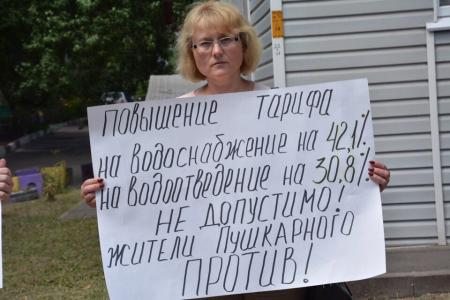 ПОВЫШЕНИЕ ТАРИФА
НА ВОДОСНАБЖЕНИЕ НА 42,1%
НА ВОДООТВЕДЕНИЕ НА 30.8%
НЕ ДОПУСТИМО!
ЖИТЕЛИ ПУШКАРНОГО
ПРОТИВ!